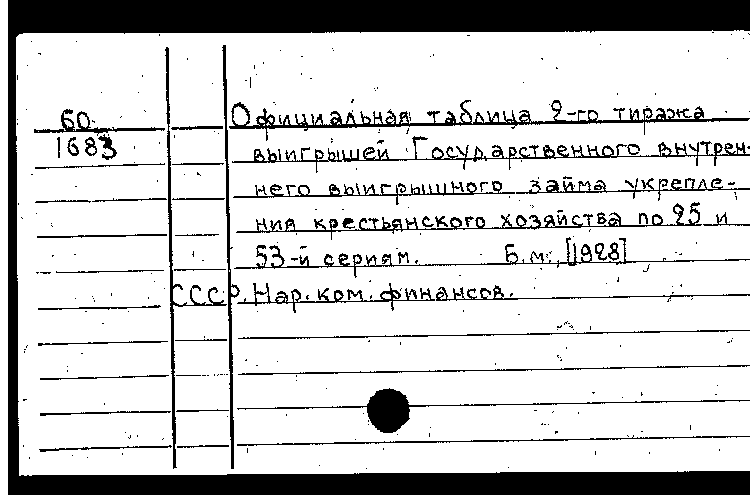 60
1683
Официальная таблица 2-го тиража
выигрышей Государственного внутрен-
него выигрышного займа укрепле-
ния крестьянского хозяйства по 25 и
53-й сериям. Б.м., [1928]
СССР. Нар. ком. финансов.